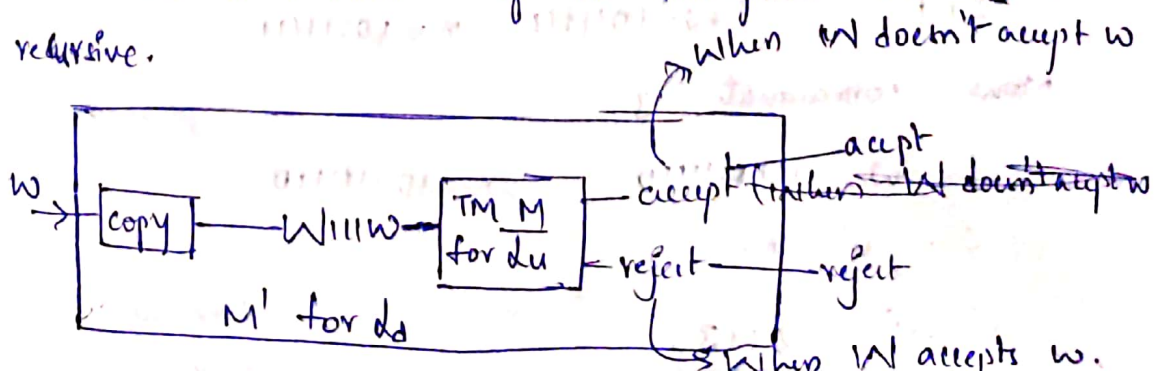 recursive.
When W doesn't accept w
accpt
w
copy
W111w
TM M
for Lu
accept (when W doesn't accept w
reject
reject
M' for Ld
When W accepts w.